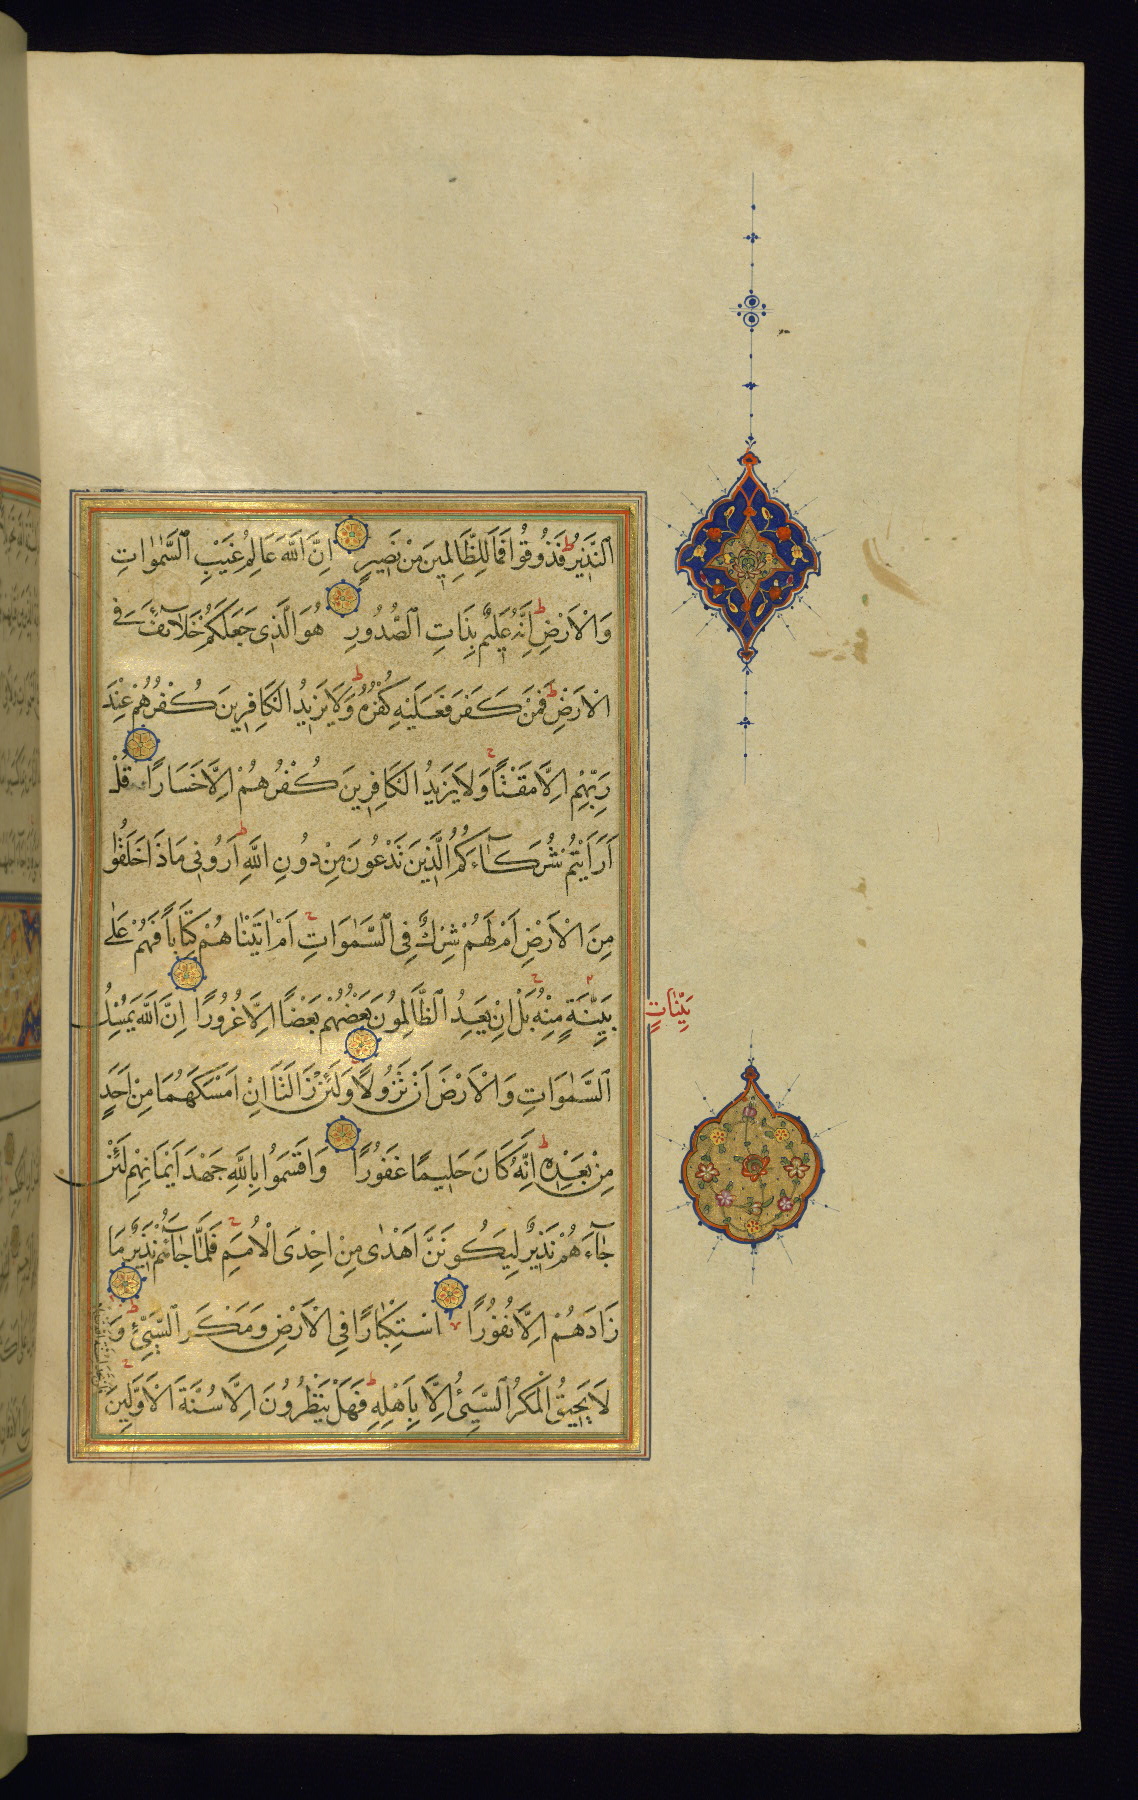 ٱلنَّذِيرُ ط فَذُوقُوا فَمَا لِلظَّالِمِينَ مِنْ نَصِيرٍ اِنَّ اللَّهَ عَالِمُ غَيْبِ ٱلسَّمٰوَاتِ
وَالْاَرْضِ ط اِنَّهُ عَلِيمٌ بِذَاتِ ٱلصُّدُورِ هُوَ الَّذِى جَعَلَكُمْ خَلَآئِفَ فِى
الْاَرْضِ ط فَمَنْ كَفَرَ فَعَلَيْهِ كُفْرُهُ ط وَلَا يَزِيدُ الْكَافِرِينَ كُفْرُهُمْ عِنْدَ
رَبِّهِمْ اِلَّا مَقْتًا ج وَلَا يَزِيدُ الْكَافِرِينَ كُفْرُهُمْ اِلَّا خَسَارًا قُلْ
اَرَاَيْتُمْ شُرَكَآءَكُمُ الَّذِينَ تَدْعُونَ مِنْ دُونِ اللَّهِ ط اَرُونِى مَاذَا خَلَقُوا
مِنَ الْاَرْضِ اَمْ لَهُمْ شِرْكٌ فِى ٱلسَّمٰوَاتِ ج اَمْ اٰتَيْنَاهُمْ كِتَابًا فَهُمْ عَلٰى
بَيِّنَةٍ مِنْهُ ج بَلْ اِنْ يَعِدُ ٱلظَّالِمُونَ بَعْضُهُمْ بَعْضًا اِلَّا غُرُورًا اِنَّ اللَّهَ يُمْسِكُ
بَيِّنَاتٍ
ٱلسَّمٰوَاتِ وَالْاَرْضَ اَنْ تَزُولَا ج وَلَئِنْ زَالَتَا اِنْ اَمْسَكَهُمَا مِنْ اَحَدٍ
مِنْ بَعْدِهِ ط اِنَّهُ كَانَ حَلِيمًا غَفُورًا وَاَقْسَمُوا بِاللَّهِ جَهْدَ اَيْمَانِهِمْ لَئِنْ
جَآءَهُمْ نَذِيرٌ لَيَكُونُنَّ اَهْدٰى مِنْ اِحْدَى الْاُمَمِ ج فَلَمَّا جَآءَهُمْ نَذِيرٌ مَا
زَادَهُمْ اِلَّا نُفُورًا اسْتِكْبَارًا فِى الْاَرْضِ وَمَكْرَ ٱلسَّيِّئِ ط وَ
لَا يَحِيقُ الْمَكْرُ ٱلسَّيِّئُ اِلَّا بِاَهْلِهِ ط فَهَلْ يَنْظُرُونَ اِلَّا سُنَّةَ الْاَوَّلِينَ ج